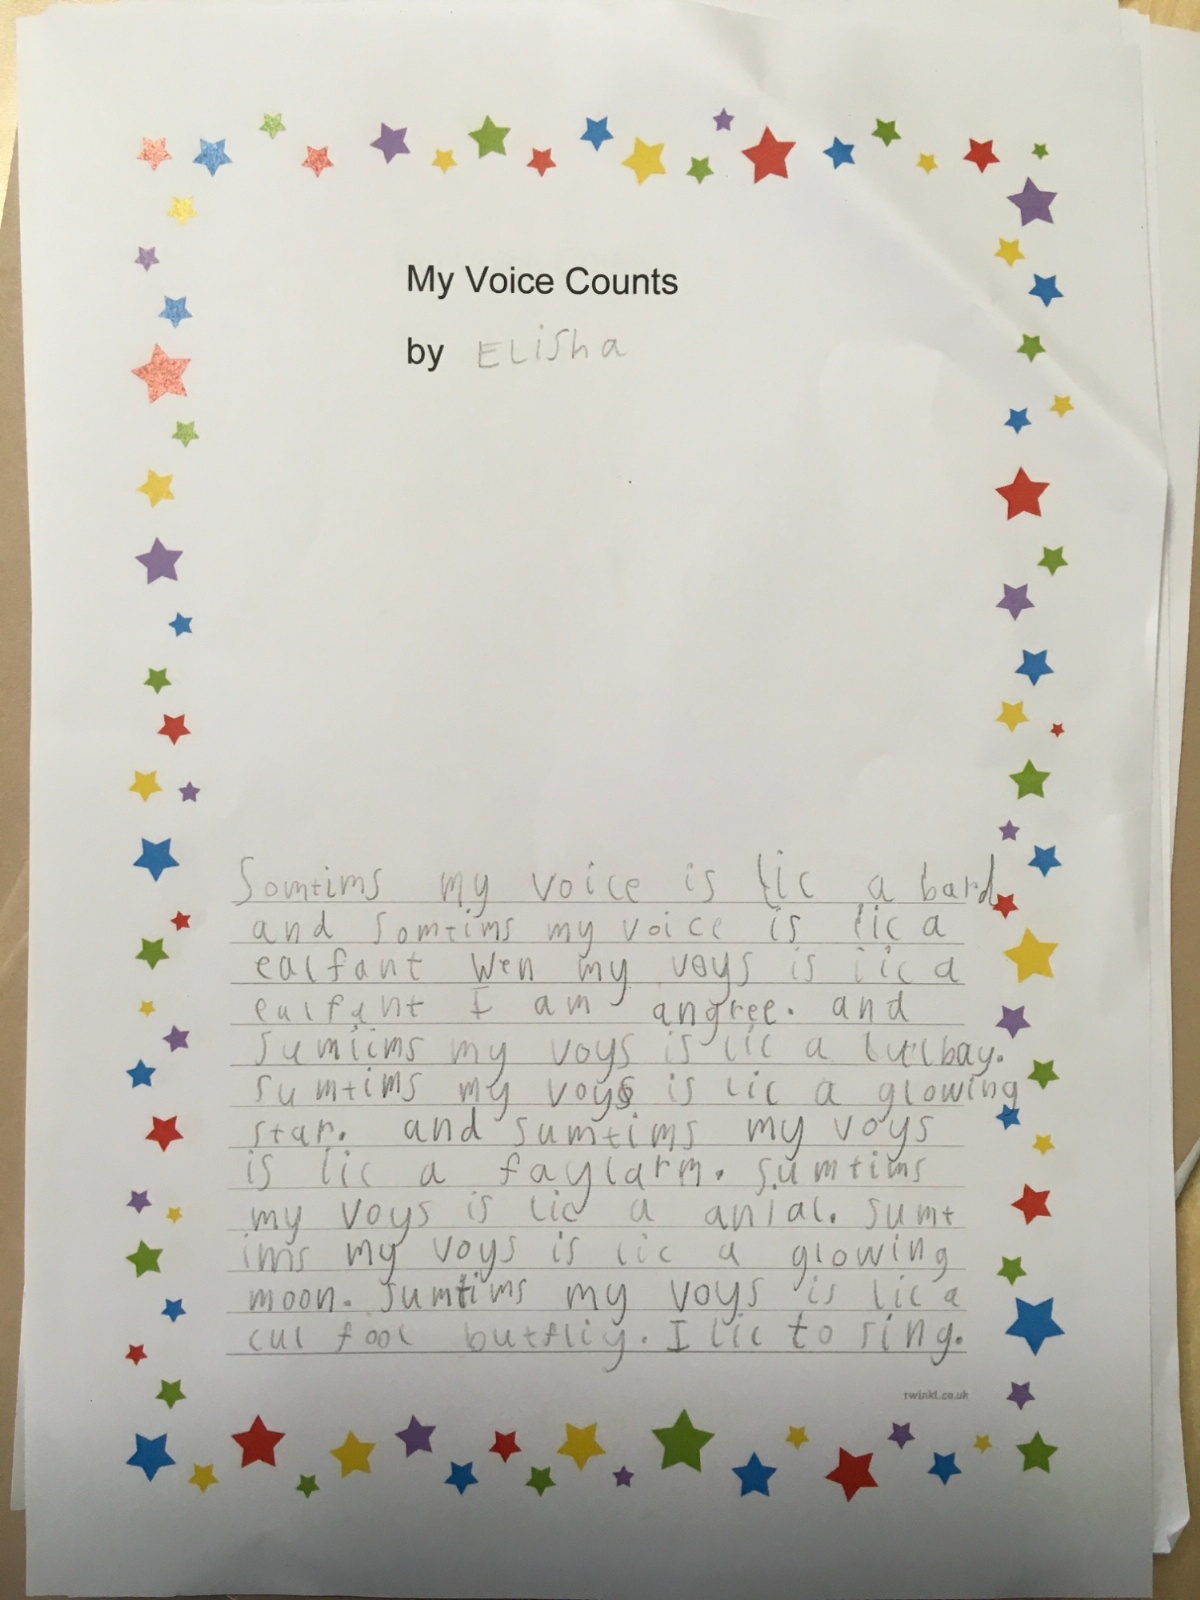 My Voice Counts
by ELiSha
Somtims my voice is lic a bard
and somtims my voice is lic a
ealfant Wen my voys is lic a
ealfant I am angree. and
sumtims my voys is lic a lullbay.
sumtims my voys is lic a glowing
star. and sumtims my voys
is lic a faylarm. sumtims
my voys is lic a anial. sumt
ims my voys is lic a glowing
moon. sumtims my voys is lic a
cul fool butfliy. I lic to sing.
twinkl.co.uk